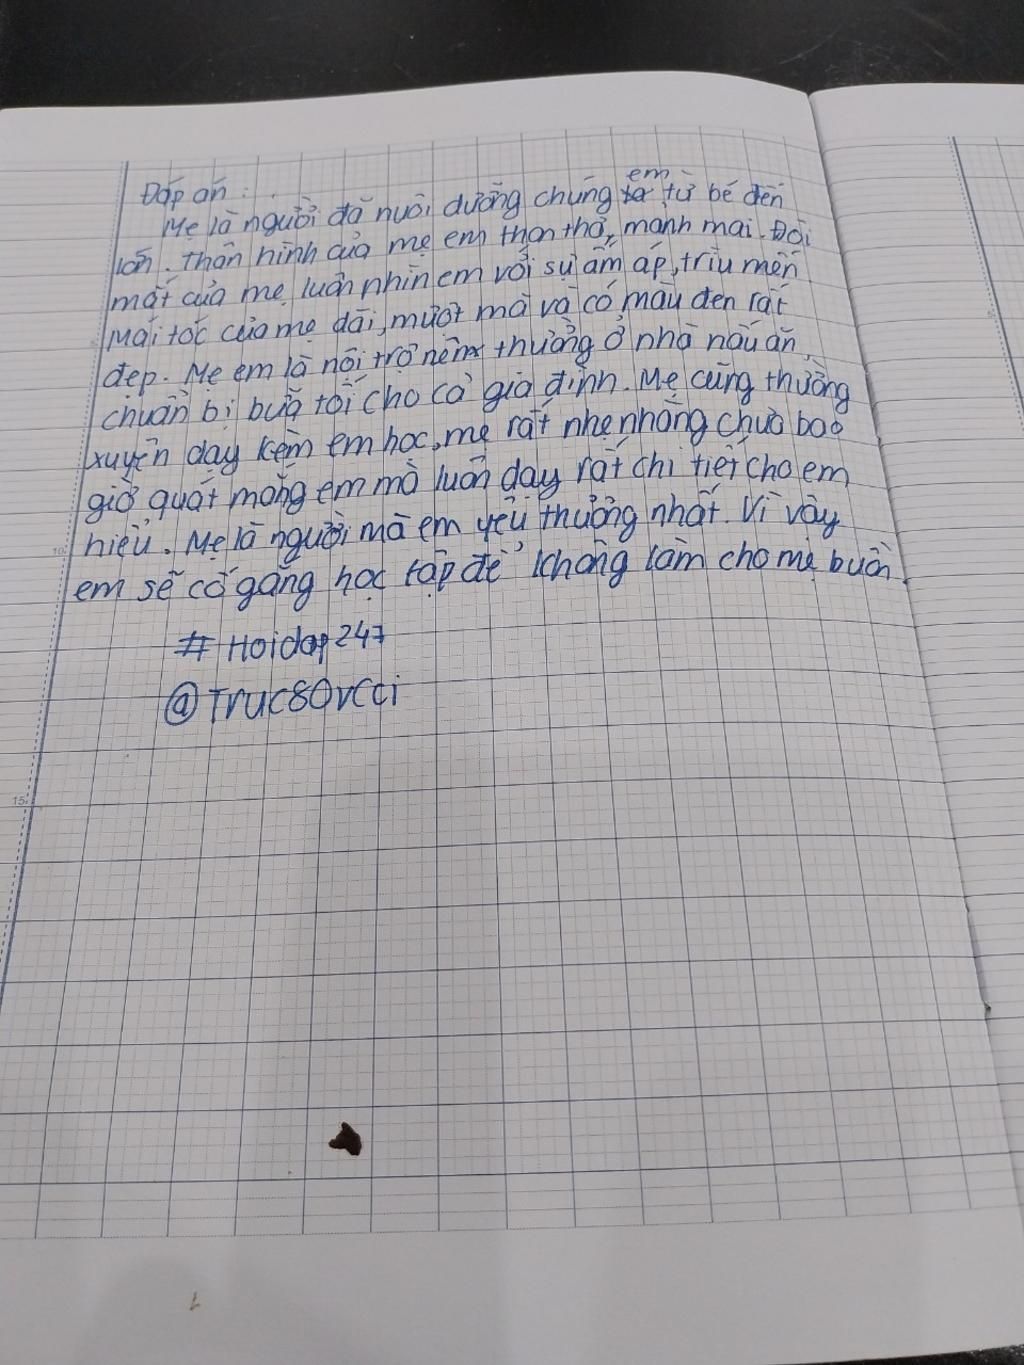 Đáp án:
Mẹ là người đã nuôi dưỡng chúng em từ bé đến
lớn. Thân hình của mẹ em thon thả, mảnh mai. Đôi
mắt của mẹ luôn nhìn em với sự ấm áp, trìu mến
Mái tóc của mẹ dài, mượt mà và có màu đen rất
đẹp. Mẹ em là nội trợ nên thường ở nhà nấu ăn,
chuẩn bị bữa tối cho cả gia đình. Mẹ cũng thường
xuyên dạy kèm em học, mẹ rất nhẹ nhàng chưa bao
giờ quát mắng em mà luôn dạy rất chi tiết cho em
hiểu. Mẹ là người mà em yêu thương nhất. Vì vậy
em sẽ cố gắng học tập để không làm cho mẹ buồn.
# Hoidap247
@Truc80rcci
10
15